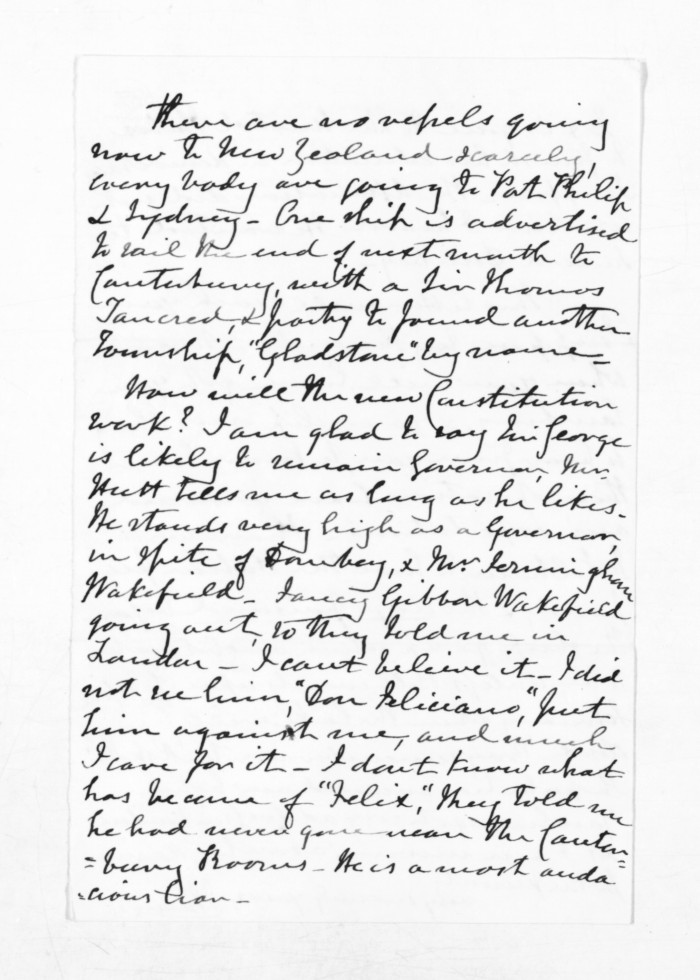 There are no vessels going
now to New Zealand scarcely,
every body are going to Port Philip
& Sydney - One ship is advertised
to sail the end of next month to
Canterbury, with a Sir Thomas
Tancred, & party to found another
Township, "Gladstone" by name =
How will the new Constitution
work? I am glad to say Sir George
is likely to remain Governor, Mr.
Hutt tells me as long as he likes.
He stands very high as a Governor,
in spite of Dombey, & Mr Jerningham
Wakefield - Fancy Gibbon Wakefield
going out, so they told me in
London - I cant believe it - I did
not see him, "Don Feliciano," put
him against me, and much
I care for it - I dont know what
has became of "Felix," they told me
he had never gone near the Canter=
=bury Rooms - He is a most auda
=cious liar -